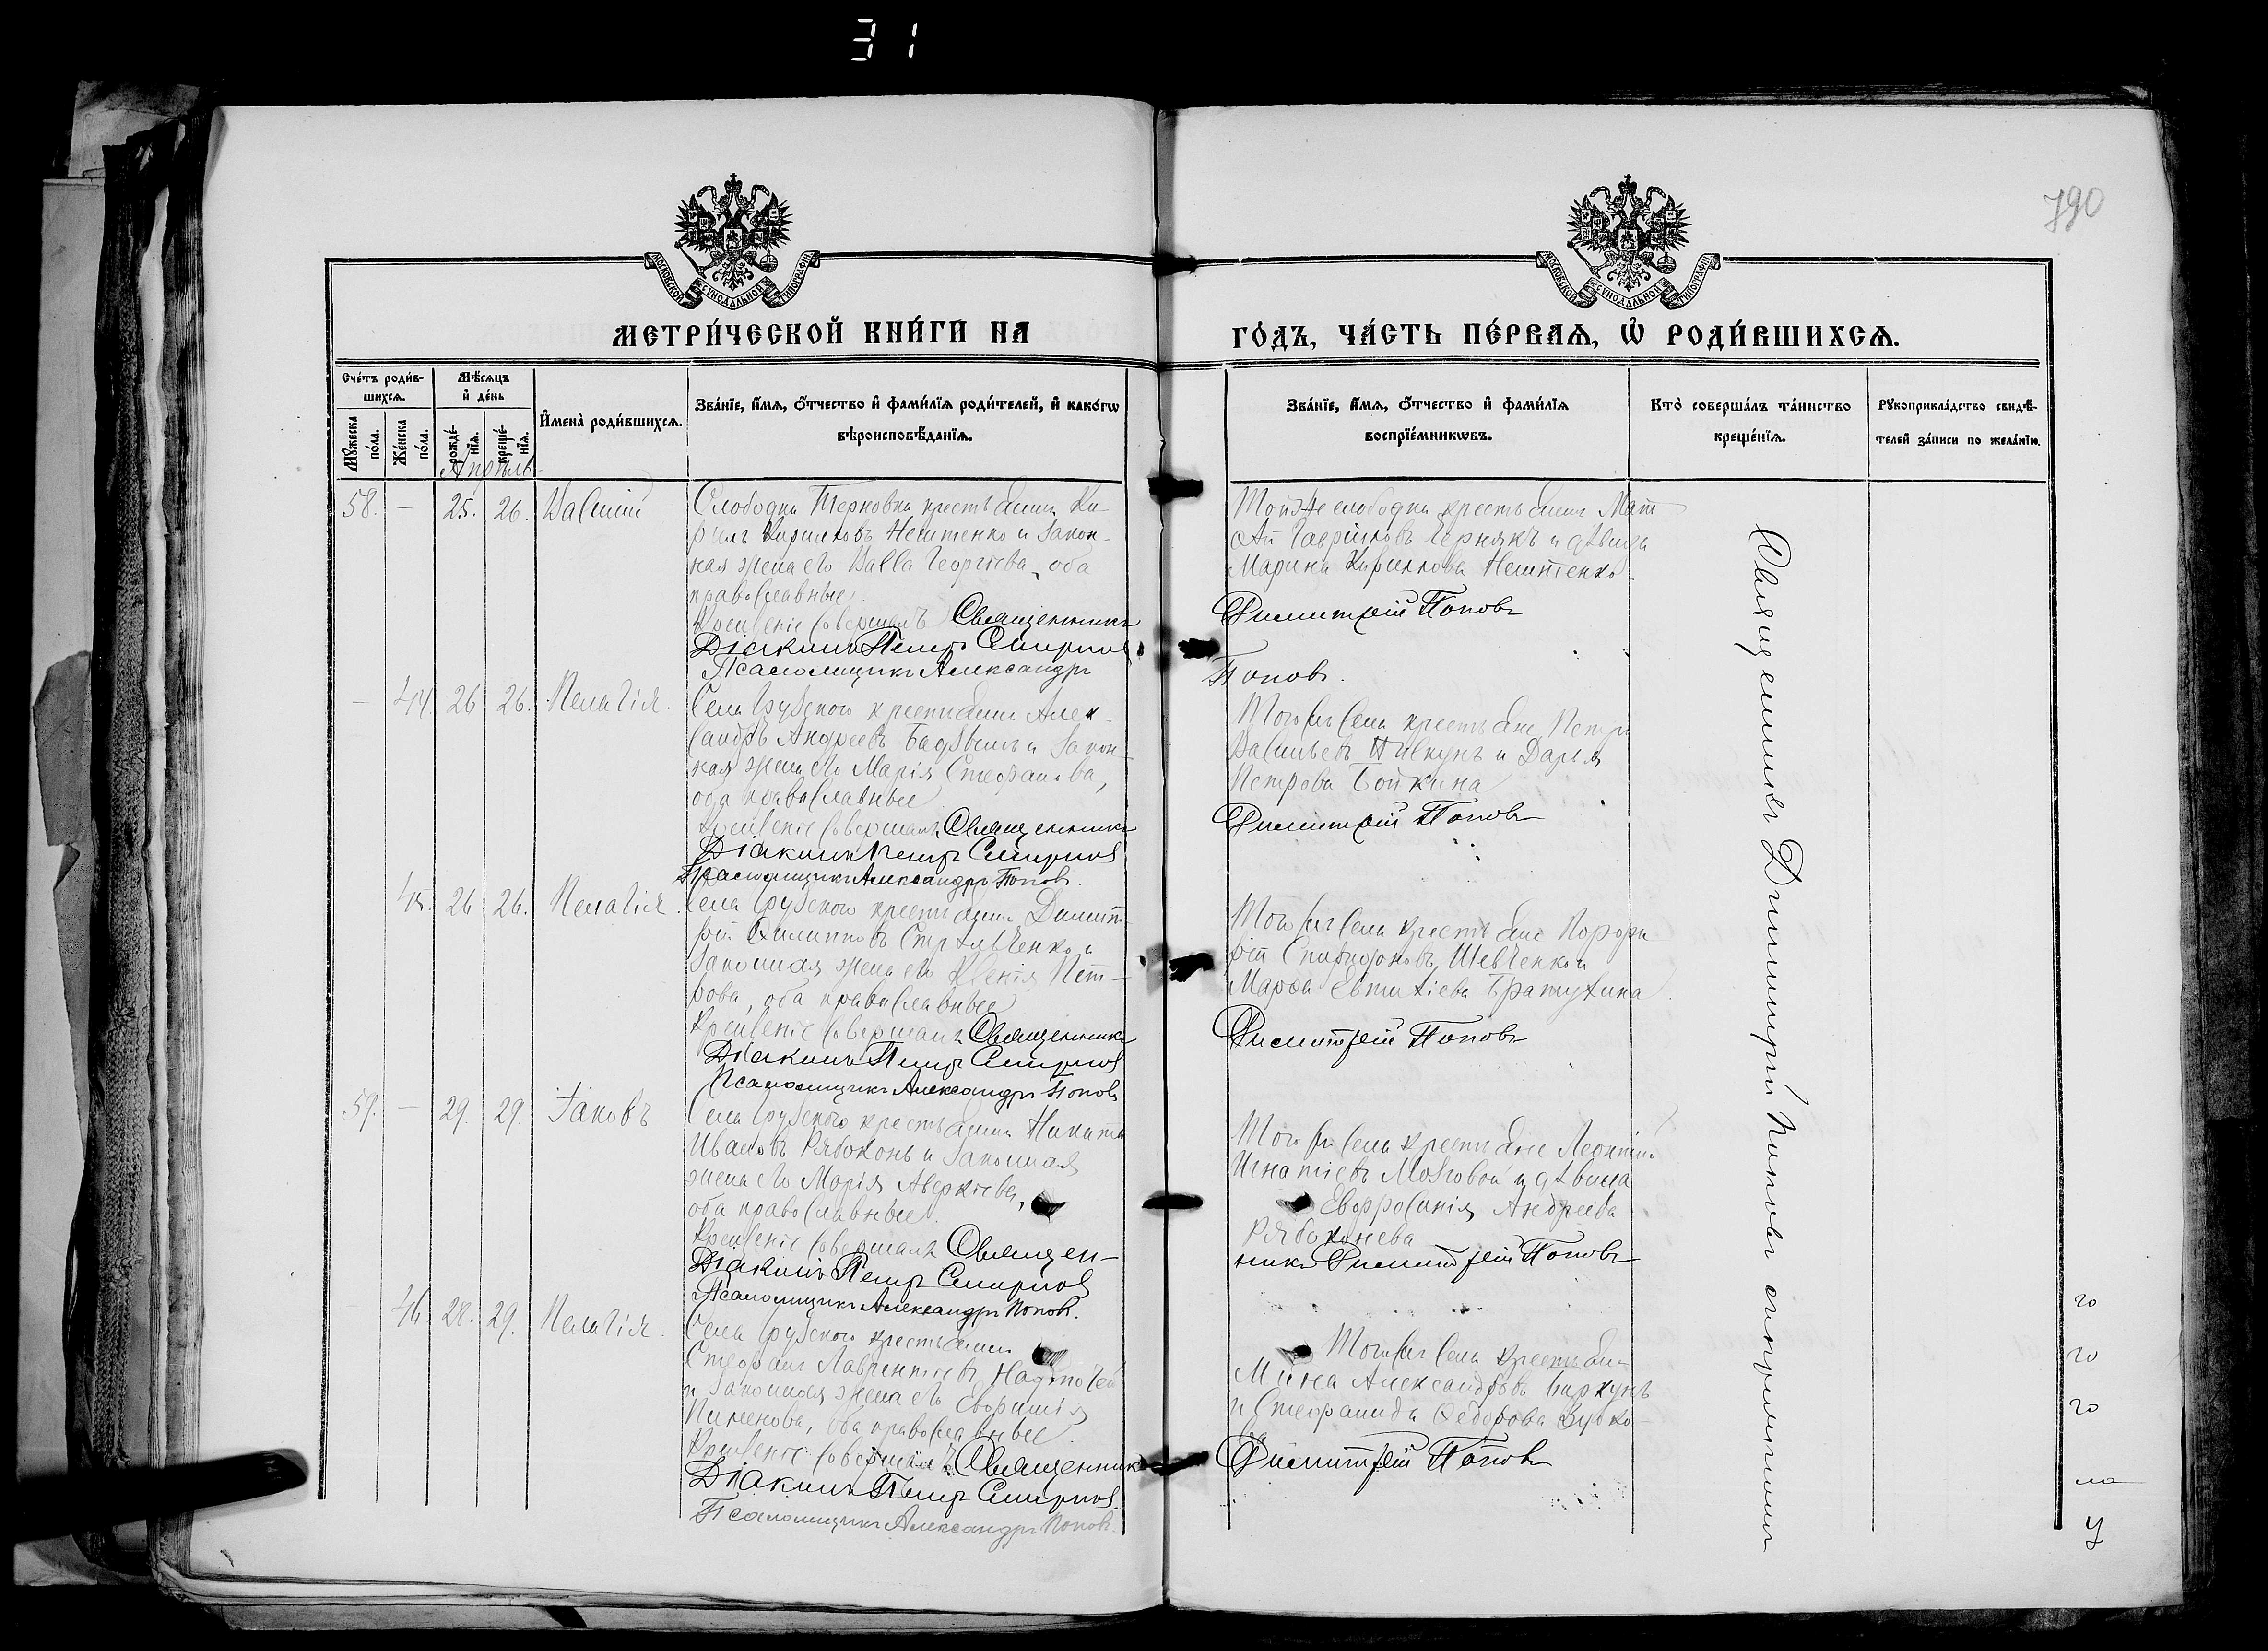 31
790
МОСКОВСКОЙ СѴНОДАЛЬНОЙ ТИПОГРАФІИ
МОСКОВСКОЙ СѴНОДАЛЬНОЙ ТИПОГРАФІИ
МЕТРИ́ЧЕСКОЙ КНИ́ГИ НА
ГО́ДЪ, ЧА́СТЬ ПЕ́РВАѦ, Ѡ҆ РОДИ́ВШИХСѦ.
Сче́тъ роди́в-
шихсѧ.
Мꙋ́жеска по́ла.
Же́нска по́ла.
Мѣ́сѧцъ и҆ де́нь
рожде́-нїѧ.
креще́-нїѧ.
И҆мена̀ роди́вшихсѧ.
Зва́нїе, и҆́мѧ, ѻ҆́тчество и҆ фами́лїѧ роди́телей, и҆ како́гѡ
вѣроисповѣ́данїѧ.
Зва́нїе, и҆́мѧ, ѻ҆́тчество и҆ фами́лїѧ
воспрїе́мникѡвъ.
Кто̀ соверша́лъ та́инство
креще́нїѧ.
Рꙋкоприкла́дство свидѣ́-
телей за́писи по жела́нїю.
Апрѣль
58. — 25. 26. Василій
Слободки Терновки крестьянинъ Ки-
риллъ Кирилловъ Нештенко и закон-
ная жена его Васса Георгіева, оба
православные.
Крещеніе совершалъ Священникъ
Діаконъ Петръ Смирновъ
Псаломщикъ Александръ
Той же слободки крестьянинъ Мат
ѳей Гавріиловъ Чернякъ и дѣвица
Марина Кириллова Нештенко.
Димитрій Поповъ
Поповъ.
— 44. 26 26. Пелагія.
Села Грузского крестьянинъ Алек-
сандръ Андреевъ и закон-
ная жена его Марія Стефанова,
оба православные
Крещеніе совершалъ Священникъ
Діаконъ Петръ Смирновъ
Псаломщикъ Александръ Поповъ.
Того же села крестьяне Петръ
Васильевъ и Дарья
Петрова Бойкина
Димитрій Поповъ
45. 26 26. Пелагія.
Села Грузского крестьянинъ Димит-
рій Филипповъ Стрѣльченко и
законная жена его Ксенія Пет-
рова, оба православные
Крещеніе совершалъ Священникъ
Діаконъ Петръ Смирновъ
Псаломщикъ Александръ Поповъ
Того же села крестьяне Порфи
рій Спиридоновъ Шевченко и
Марѳа Евтихіева Братухина
Димитрій Поповъ
59. — 29. 29. Іаковъ
Села Грузского крестьянинъ Никита
Ивановъ Рябоконь и законная
жена его Марія Аверкіева,
оба православные.
Крещеніе совершалъ Священ-
Діаконъ Петръ Смирновъ
Псаломщикъ Александръ Поповъ.
Того же села крестьяне Леонтій
Игнатіевъ Мозговой и дѣвица
Евфросинія Андреева
Рябоконева
никъ Димитрій Поповъ
46. 28. 29. Пелагія.
Села Грузского крестьянинъ
Стефанъ Лаврентіевъ
и законная жена его Евфимія
Пименова, оба православные.
Крещеніе совершалъ Священникъ
Діаконъ Петръ Смирновъ.
Псаломщикъ Александръ Поповъ.
Того же села крестьяне
Мина Александровъ
и Стефанида Ѳедорова Зубко-
ва
Димитрій Поповъ
Священникъ Димитрій Поповъ
го
го
го
ла
у